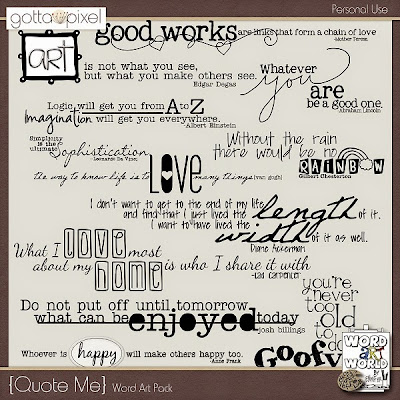 gotta pixel
Personal Use
good works are links that form a chain of love
-Mother Teresa
ART
is not what you see,
but what you make others see.
Edgar Degas
Whatever
you
are
be a good one.
Abraham Lincoln
Logic will get you from A to Z
imagination will get you everywhere.
Albert Einstein
Simplicity
is the
ultimate
Sophistication
-Leonardo Da Vinci
Without the rain
there would be no
RAINBOW
Gilbert Chesterton
the way to know life is to LOVE many things (van gogh)
I don't want to get to the end of my life
and find that I just lived the length of it.
I want to have lived the
width of it as well.
Diane Ackerman
What I love most
about my home is who I share it with
-Tad Carpenter
you're
never
too
old
to
do
GOOFY
Do not put off until tomorrow
what can be enjoyed today
josh billings
Whoever is happy will make others happy too.
-Anne Frank
WORD
art
WORLD
{Quote Me} Word Art Pack